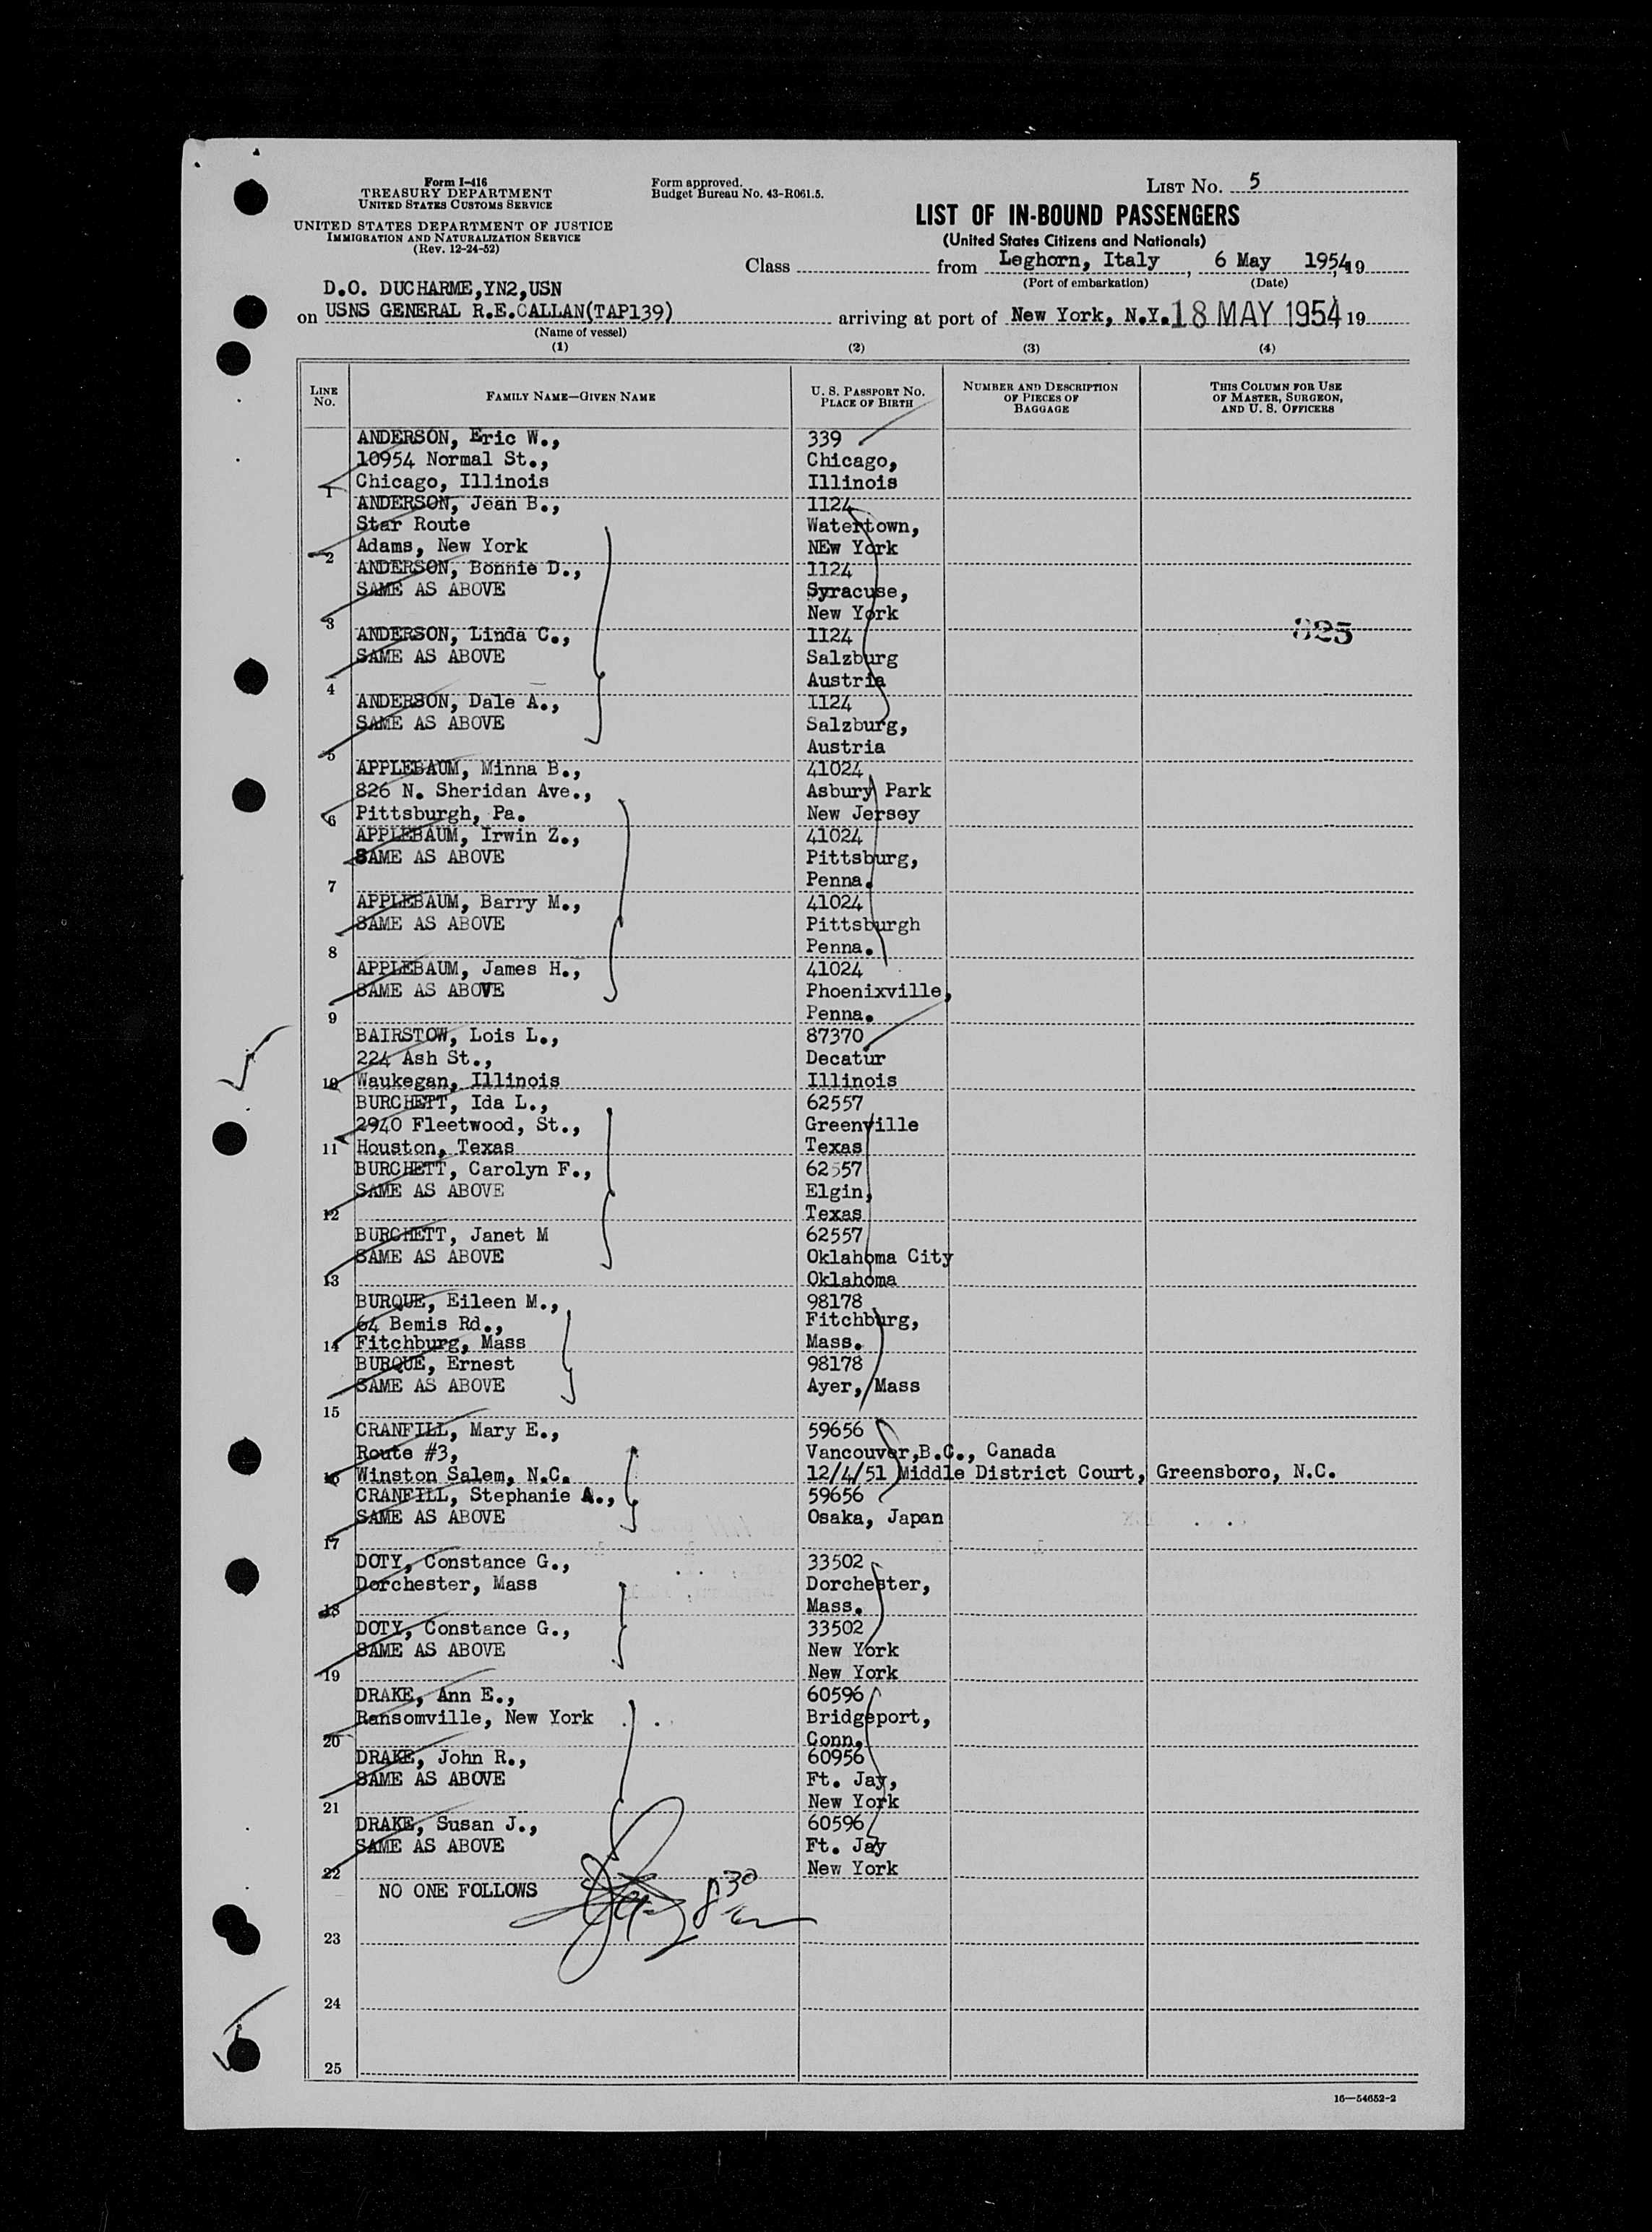 Form I-416
TREASURY DEPARTMENT
UNITED STATES CUSTOMS SERVICE
UNITED STATES DEPARTMENT OF JUSTICE
IMMIGRATION AND NATURALIZATION SERVICE
(Rev. 12-24-52)
Form approved.
Budget Bureau No. 43-R061.5.
LIST NO. 5
LIST OF IN-BOUND PASSENGERS
(United States Citizens and Nationals)
Class from Leghorn, Italy, 6 May 1954, 19
(Port of embarkation) (Date)
D.O. DUCHARME,YN2,USN
on USNS GENERAL R.E.CALLAN(TAP139) arriving at port of New York, N.Y. 18 MAY 1954 19
(Name of vessel)
(1) (2) (3) (4)
LINE NO. FAMILY NAME—GIVEN NAME U. S. PASSPORT NO. PLACE OF BIRTH NUMBER AND DESCRIPTION OF PIECES OF BAGGAGE THIS COLUMN FOR USE OF MASTER, SURGEON, AND U. S. OFFICERS
ANDERSON, Eric W., 339
10954 Normal St., Chicago,
1 Chicago, Illinois Illinois
ANDERSON, Jean B., 1124
Star Route Watertown,
2 Adams, New York NEw York
ANDERSON, Bonnie D., 1124
SAME AS ABOVE Syracuse,
3 New York
ANDERSON, Linda C., 1124 825
SAME AS ABOVE Salzburg
4 Austria
ANDERSON, Dale A., 1124
SAME AS ABOVE Salzburg,
5 Austria
APPLEBAUM, Minna B., 41024
826 N. Sheridan Ave., Asbury Park
6 Pittsburgh, Pa. New Jersey
APPLEBAUM, Irwin Z., 41024
SAME AS ABOVE Pittsburg,
7 Penna.
APPLEBAUM, Barry M., 41024
SAME AS ABOVE Pittsburgh
8 Penna.
APPLEBAUM, James H., 41024
SAME AS ABOVE Phoenixville,
9 Penna.
BAIRSTOW, Lois L., 87370
224 Ash St., Decatur
10 Waukegan, Illinois Illinois
BURCHETT, Ida L., 62557
2940 Fleetwood, St., Greenville
11 Houston, Texas Texas
BURCHETT, Carolyn F., 62557
SAME AS ABOVE Elgin,
12 Texas
BURCHETT, Janet M 62557
SAME AS ABOVE Oklahoma City
13 Oklahoma
BURQUE, Eileen M., 98178
64 Bemis Rd., Fitchburg,
14 Fitchburg, Mass Mass.
BURQUE, Ernest 98178
SAME AS ABOVE Ayer, Mass
15
CRANFILL, Mary E., 59656
Route #3, Vancouver,B.C., Canada
16 Winston Salem, N.C. 12/4/51 Middle District Court, Greensboro, N.C.
CRANFILL, Stephanie A., 59656
SAME AS ABOVE Osaka, Japan
17
DOTY, Constance G., 33502
Dorchester, Mass Dorchester,
18 Mass.
DOTY, Constance G., 33502
SAME AS ABOVE New York
19 New York
DRAKE, Ann E., 60596
Ransomville, New York Bridgeport,
20 Conn.
DRAKE, John R., 60956
SAME AS ABOVE Ft. Jay,
21 New York
DRAKE, Susan J., 60596
SAME AS ABOVE Ft. Jay
22 New York
NO ONE FOLLOWS 8 30
23
24
25
16—54652-2